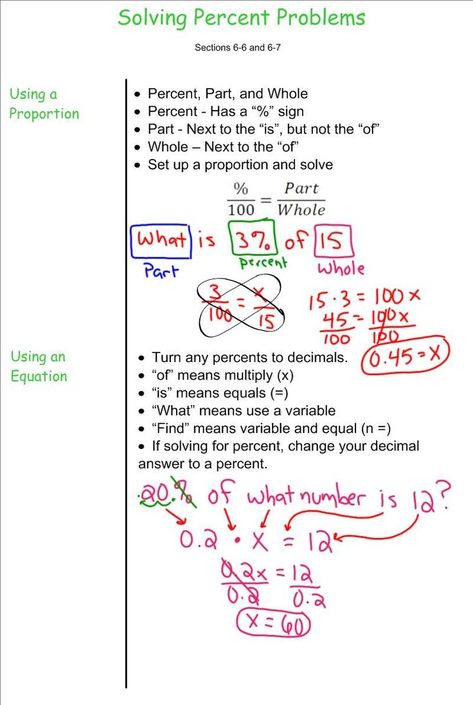 Solving Percent Problems
Sections 6-6 and 6-7
Using a
Proportion
• Percent, Part, and Whole
• Percent - Has a “%” sign
• Part - Next to the “is”, but not the “of”
• Whole – Next to the “of”
• Set up a proportion and solve
%/100 = Part/Whole
What is 3% of 15
Part percent Whole
3/100 = x/15
15 · 3 = 100x
45/100 = 100x/100
0.45 = x
Using an
Equation
• Turn any percents to decimals.
• “of” means multiply (x)
• “is” means equals (=)
• “What” means use a variable
• “Find” means variable and equal (n =)
• If solving for percent, change your decimal
answer to a percent.
.20.% of what number is 12?
0.2 · x = 12
0.2x/0.2 = 12/0.2
x = 60